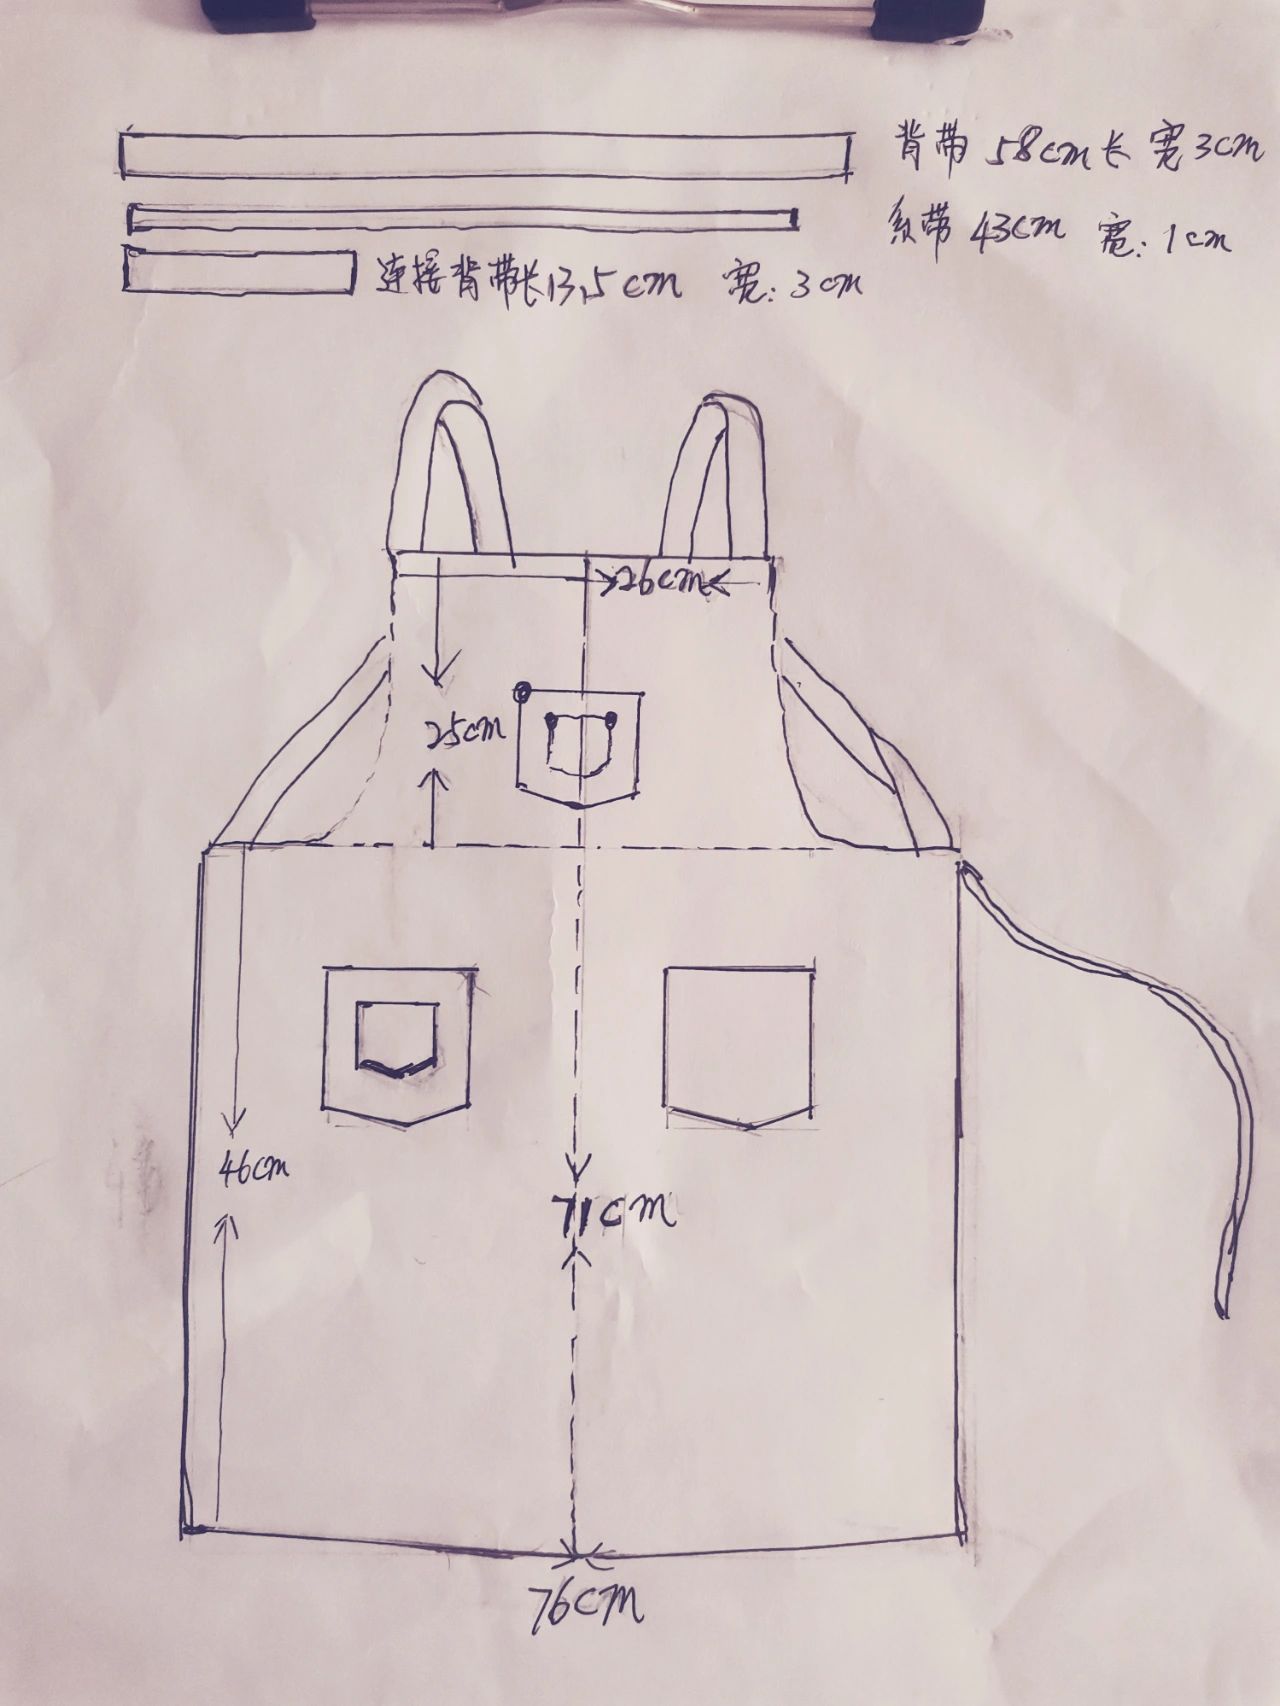 背带 58cm长 宽3cm
系带 43cm 宽:1cm
连接背带长13,5cm 宽:3cm
26cm
25cm
46cm
71cm
76cm